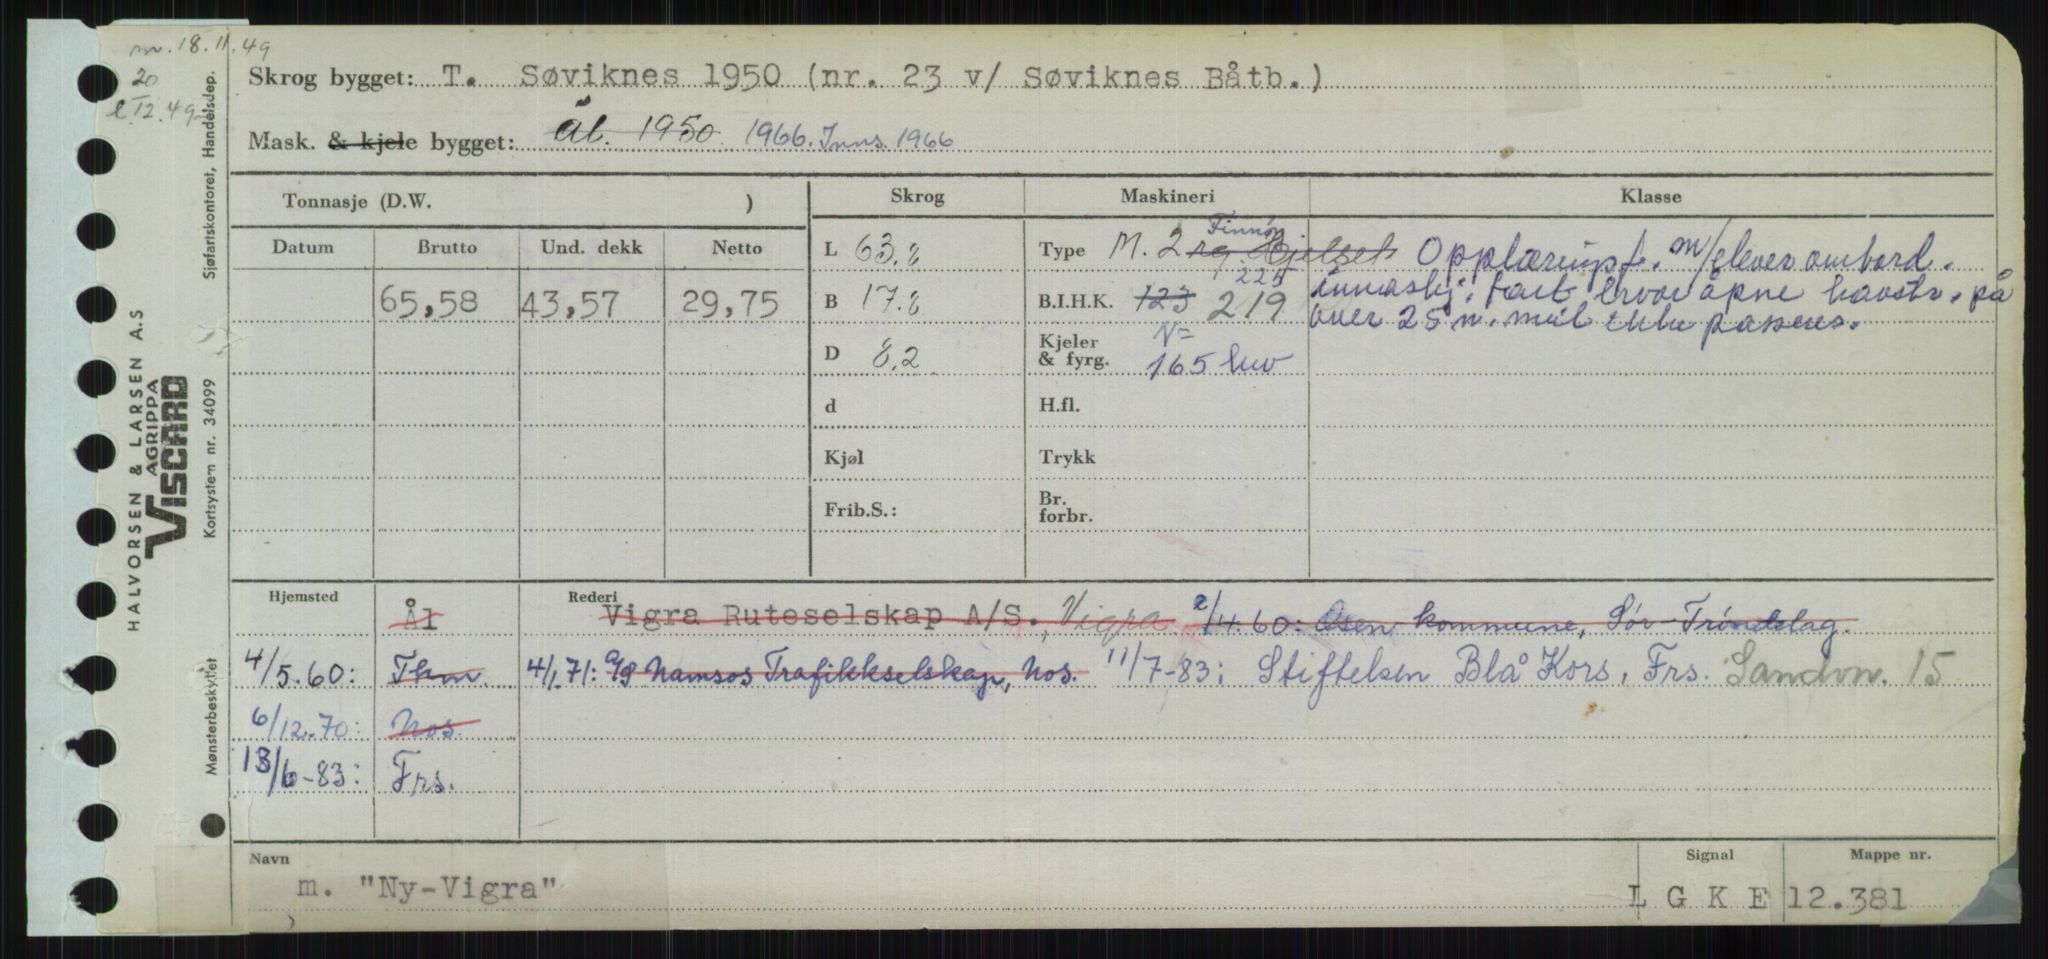 18.11.49
20
12.49
Skrog bygget: T. Søviknes 1950 (nr. 23 v/ Søviknes Båtb.)
Mask. & kjele bygget: Ål. 1950 1966. Inns. 1966
Tonnasje (D.W. )
Skrog
Maskineri
Klasse
Datum Brutto Und. dekk Netto
65,58 43,57 29,75
L 63.8
B 17.8
D 8.2
d
Kjøl
Frib.S.:
Finnøy
Type M. 2 Hjelset
225
B.I.H.K. 123 219
Kjeler & fyrg. N= 165 kw
H.fl.
Trykk
Br. forbr.
Opplæringsf. m/elever ombord.
innaskj. fart hvor åpne havstr. på
over 25 n. mil ikke passeres.
Hjemsted Rederi
Ål Vigra Ruteselskap A/S., Vigra 2/4.60: Osen kommune, Sör-Tröndelag.
4/5.60: Thm. 4/1.71: A/S Namsos Trafikkselskap, Nos. 11/7-83: Stiftelsen Blå Kors, Frs. Sandvn. 15
6/12.70: Nos.
13/6-83: Frs.
Navn Signal Mappe nr.
m. "Ny-Vigra" L G K E 12.381
HALVORSEN & LARSEN A.S
AGRIPPA
VISCARD
Mønsterbeskyttet Kortsystem nr. 34099 Sjøfartskontoret, Handelsdep.